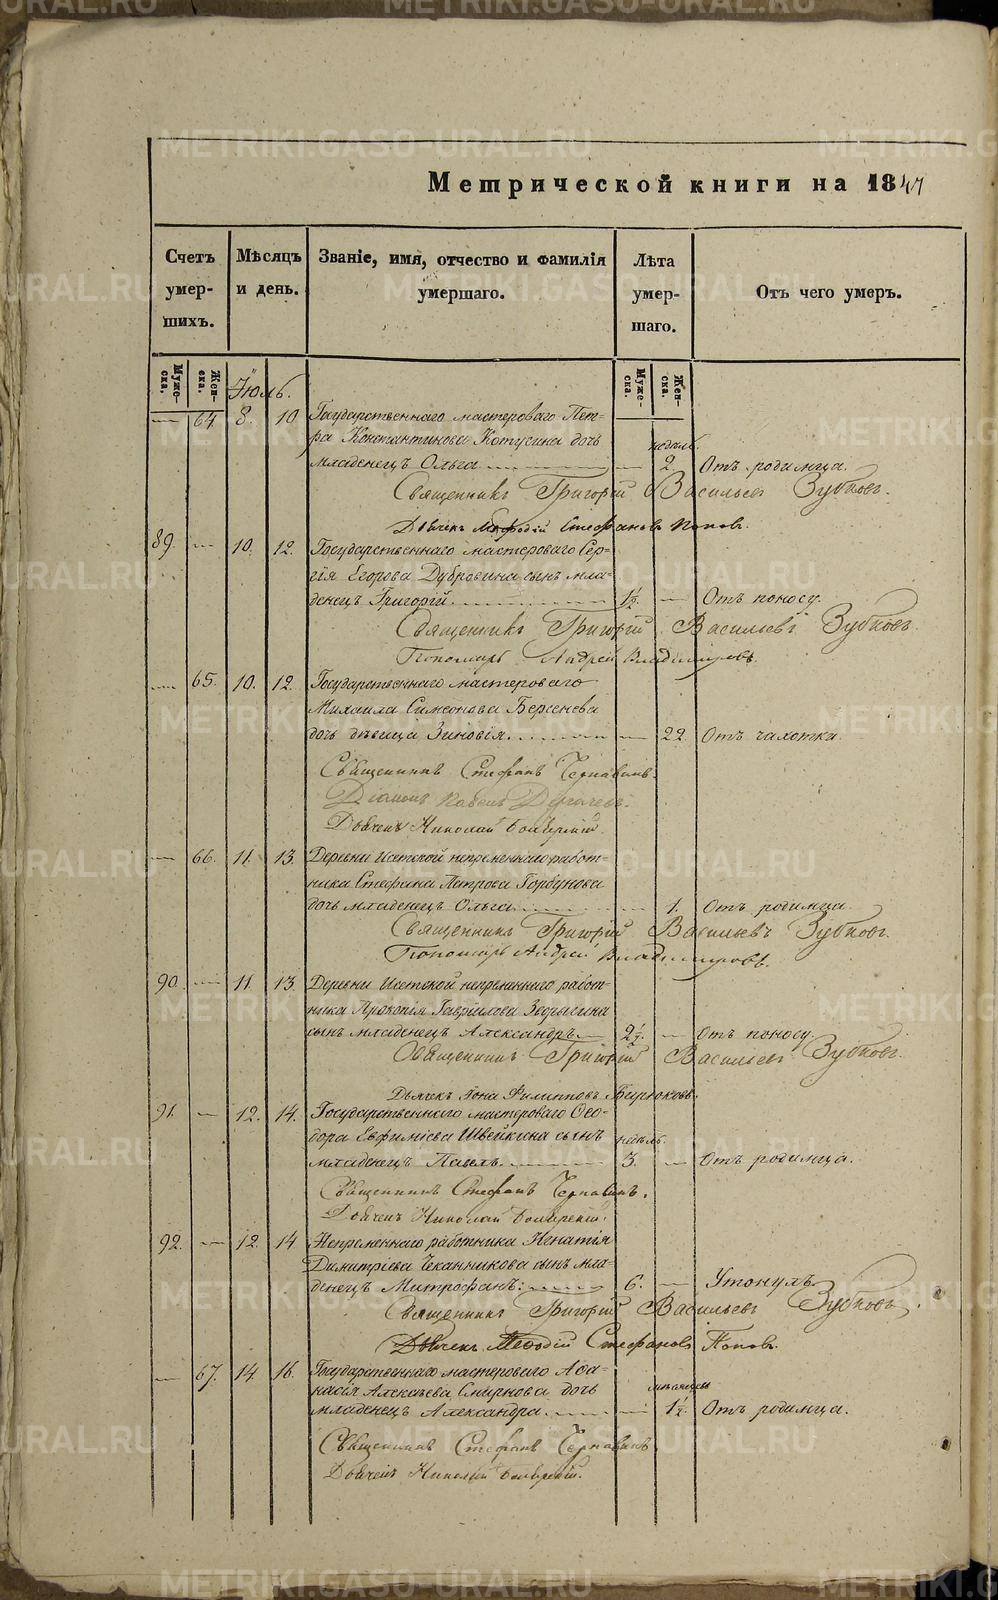 METRIKI.GASO-URAL.RU
Метрической книги на 1847
Счетъ умер- шихъ.
Мѣсяцъ и день.
Званіе, имя, отчество и фамилія умершаго.
Лѣта умер- шаго.
Отъ чего умеръ.
Муже- ска.
Жен- ска.
Іюль.
Муже- ска.
Жен- ска.
— 64 8. 10 Государственнаго мастероваго Пет-
ра Константинова Котусина дочь недѣль
младенецъ Ольга — 2. Отъ родимца.
Священникъ Григорій Васильевъ Зубковъ.
Дьячекъ Мефодій Стефановъ Поповъ.
89. — 10. 12. Государственнаго мастероваго Сер-
гія Егорова Дубровина сынъ мла-
денецъ Григорій. 1½. — Отъ поносу.
Священникъ Григорій Васильевъ Зубковъ.
Пономарь Андрей Владимировъ.
— 65. 10. 12. Государственнаго мастероваго
Михаила Симеонова Берсенева
дочь дѣвица Зиновія. — 22 Отъ чахотки
Священникъ Стефанъ Чернавинъ.
Діаконъ Павелъ
Дьячекъ Николай
— 66. 11. 13. Деревни Исетской непремѣннаго работ-
ника Стефана Петрова Горбунова
дочь младенецъ Ольга 1. Отъ родимца
Священникъ Григорій Васильевъ Зубковъ.
Пономарь Андрей Владимировъ.
90. — 11. 13 Деревни Исетской непремѣннаго работ-
ника Прокопія Гавріилова
сынъ младенецъ Александръ. 2½. — Отъ поносу.
Священникъ Григорій Васильевъ Зубковъ.
Дьячекъ Іона Филипповъ Бирюковъ.
91. — 12. 14. Государственнаго мастероваго Ѳео-
дора Евфиміева Швейкина сынъ недѣль.
младенецъ Павелъ. 3. — Отъ родимца.
Священникъ Стефанъ Чернавинъ.
Дьячекъ Николай
92. — 12. 14 Непремѣннаго работника Игнатія
Димитріева Чеканникова сынъ мла-
денецъ Митрофанъ: 6. — Утонулъ.
Священникъ Григорій Васильевъ Зубковъ.
Дьячекъ Меѳодій Стефановъ Поповъ.
— 67. 14. 16. Государственнаго мастероваго Аѳа-
насія Алексѣева Смирнова дочь мѣсяцевъ
младенецъ Александра. — 1½. Отъ родимца.
Священникъ Стефанъ Чернавинъ
Дьячекъ Николай